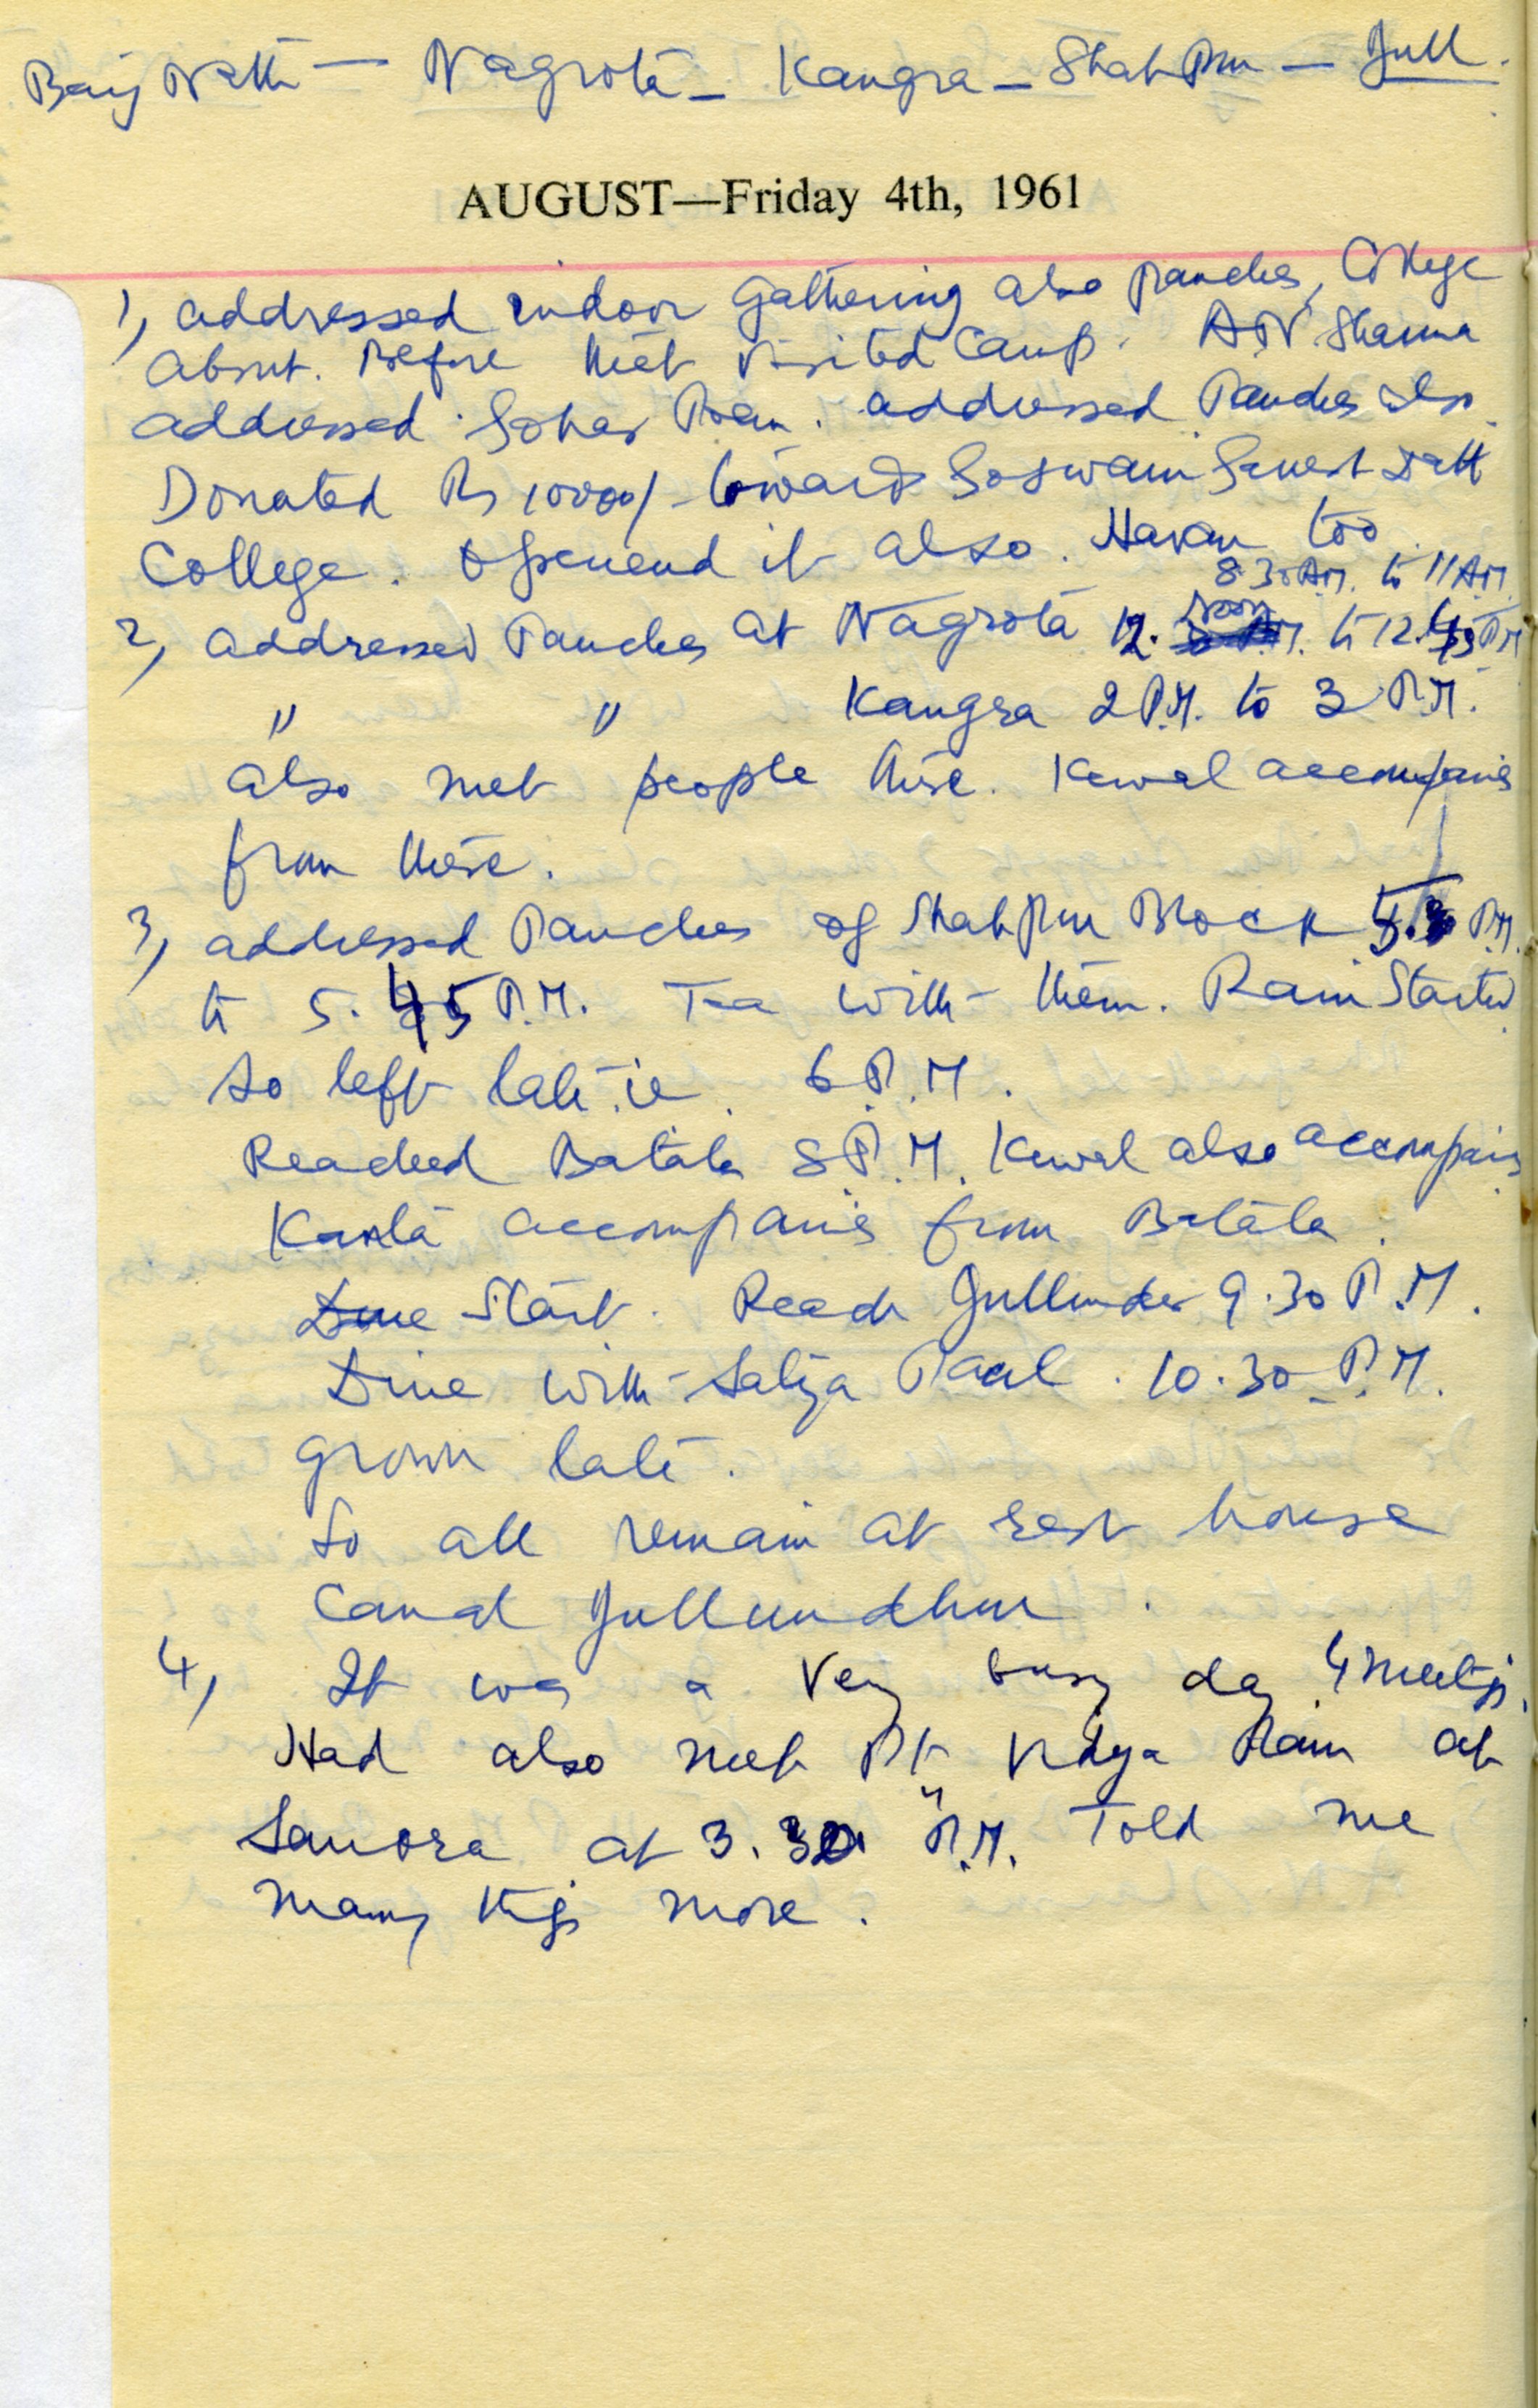 Baij Nath — Nagrota – Kangra – Shahpur – Jull.
AUGUST—Friday 4th, 1961
1, addressed indoor gathering also panches, College
about. Before that visited Camp. A N Sharma
addressed. Ram. addressed Panches also.
Donated Rs 10000/- toward Goswami Ganesh Datt
College. Openend it also. Havan too.
8.30 A.M. to 11 A.M.
2, addressed Panches at Nagrota 12. Noon to 12.45 P.M
" " Kangra 2 P.M. to 3 P.M.
also met people there. Kewal accompanies
from there.
3, addressed Panches of Shahpur Block P.M.
to 5.45 P.M. Tea with them. Rain Started
so left late ie. 6 P.M.
Reached Batala 8 P.M. Kewal also accompanies
Kanta accompanies from Batala.
Dine Start. Reach Jullunder 9.30 P.M.
Dine with Satya Paul. 10.30 P.M.
grown late.
So all remain at rest house
Canal Jullundhur.
4, It was a very busy day. 4 meetgs.
Had also met Pt Vidya Ram at
at 3.30 P.M. Told me
many thgs more.